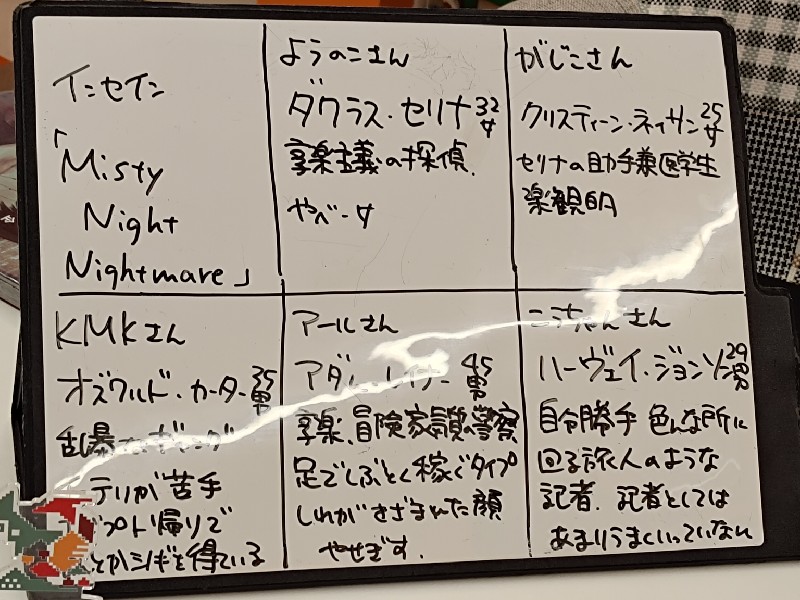 インセイン
「Misty
Night
Nightmare」
ようのこさん
ダグラス・セリナ 32
女
享楽主義の探偵.
やべー女
がじこさん
クリスティーン・ネイサン 25
女
セリナの助手兼医学生
楽観的
KMKさん
オズワルド・カーター 35
男
乱暴
テリが苦手
プト帰りで
を得ている
アールさん
アダム 45
男
享楽、冒険家気質の警察
足でしぶとく稼ぐタイプ
しわがきざまれた顔
やせぎす.
こうちゃんさん
ハーヴェイ・ジョンソン 29
男
自分勝手 色んな所に
回る旅人のような
記者. 記者としては
あまりうまくいっていない